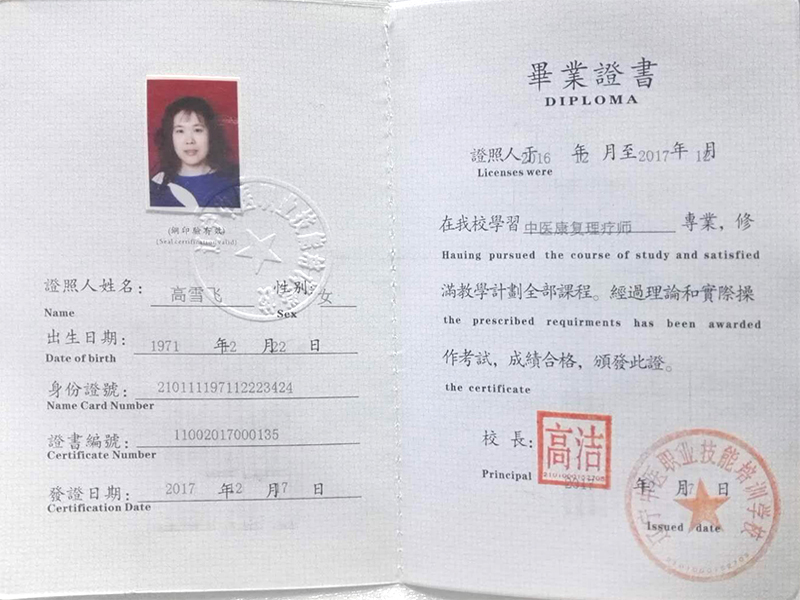 (鋼印驗有效)
(Seal certification valid)
證照人姓名：高雪飞 性別：女
Name Sex
出生日期：1971 年12 月22 日
Date of birth
身份證號：210111197112223424
Name Card Number
證書編號：11002017000135
Certificate Number
發證日期：2017 年12 月17 日
Certification Date
畢業證書
DIPLOMA
證照人于2016 年12 月至2017年12月
Licenses were
在我校學習中医康复理疗师專業，修
Hauing pursued the course of study and satisfied
滿教學計劃全部課程。經過理論和實際操
the prescribed requirments has been awarded
作考試，成績合格，頒發此證。
the certificate
校長：高洁
Principal
年 月 日
Issued date
辽宁中医职业技能培训学校